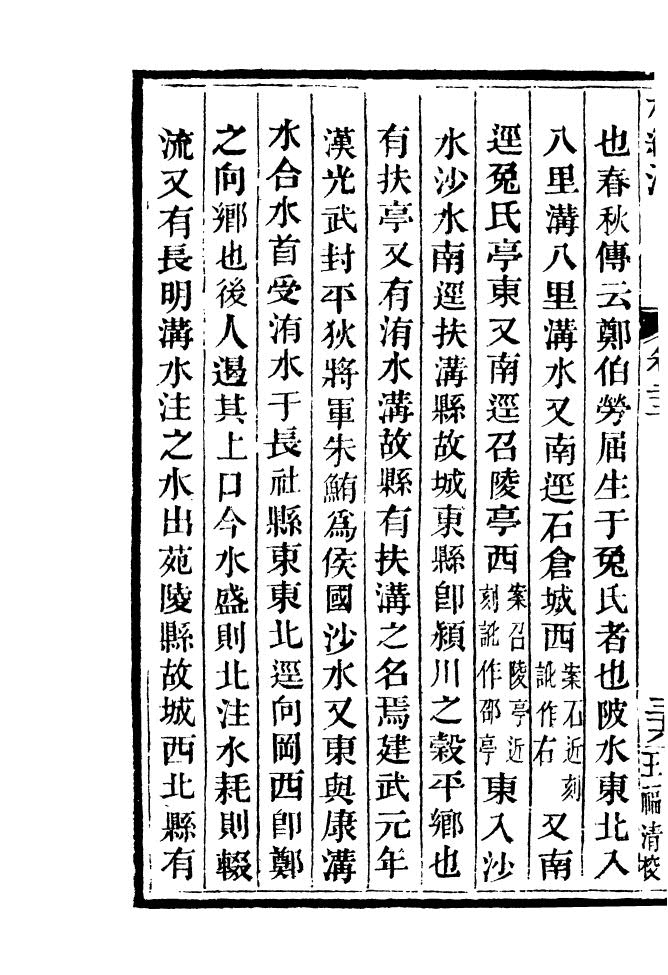 也春秋傳云鄭伯勞屈生于兔氏者也陂水東北入
八里溝八里溝水又南逕石倉城西案石近刻訛作右又南
逕兔氏亭東又南逕召陵亭西案召陵亭近刻訛作邵亭東入沙
水沙水南逕扶溝縣故城東縣即潁川之榖平鄉也
有扶亭又有洧水溝故縣有扶溝之名焉建武元年
漢光武封平狄將軍朱鮪為侯國沙水又東與康溝
水合水首受洧水于長社縣東東北逕向岡西即鄭
之向鄉也後人遏其上口今水盛則北注水耗則輟
流又有長明溝水注之水出苑陵縣故城西北縣有
王福清校